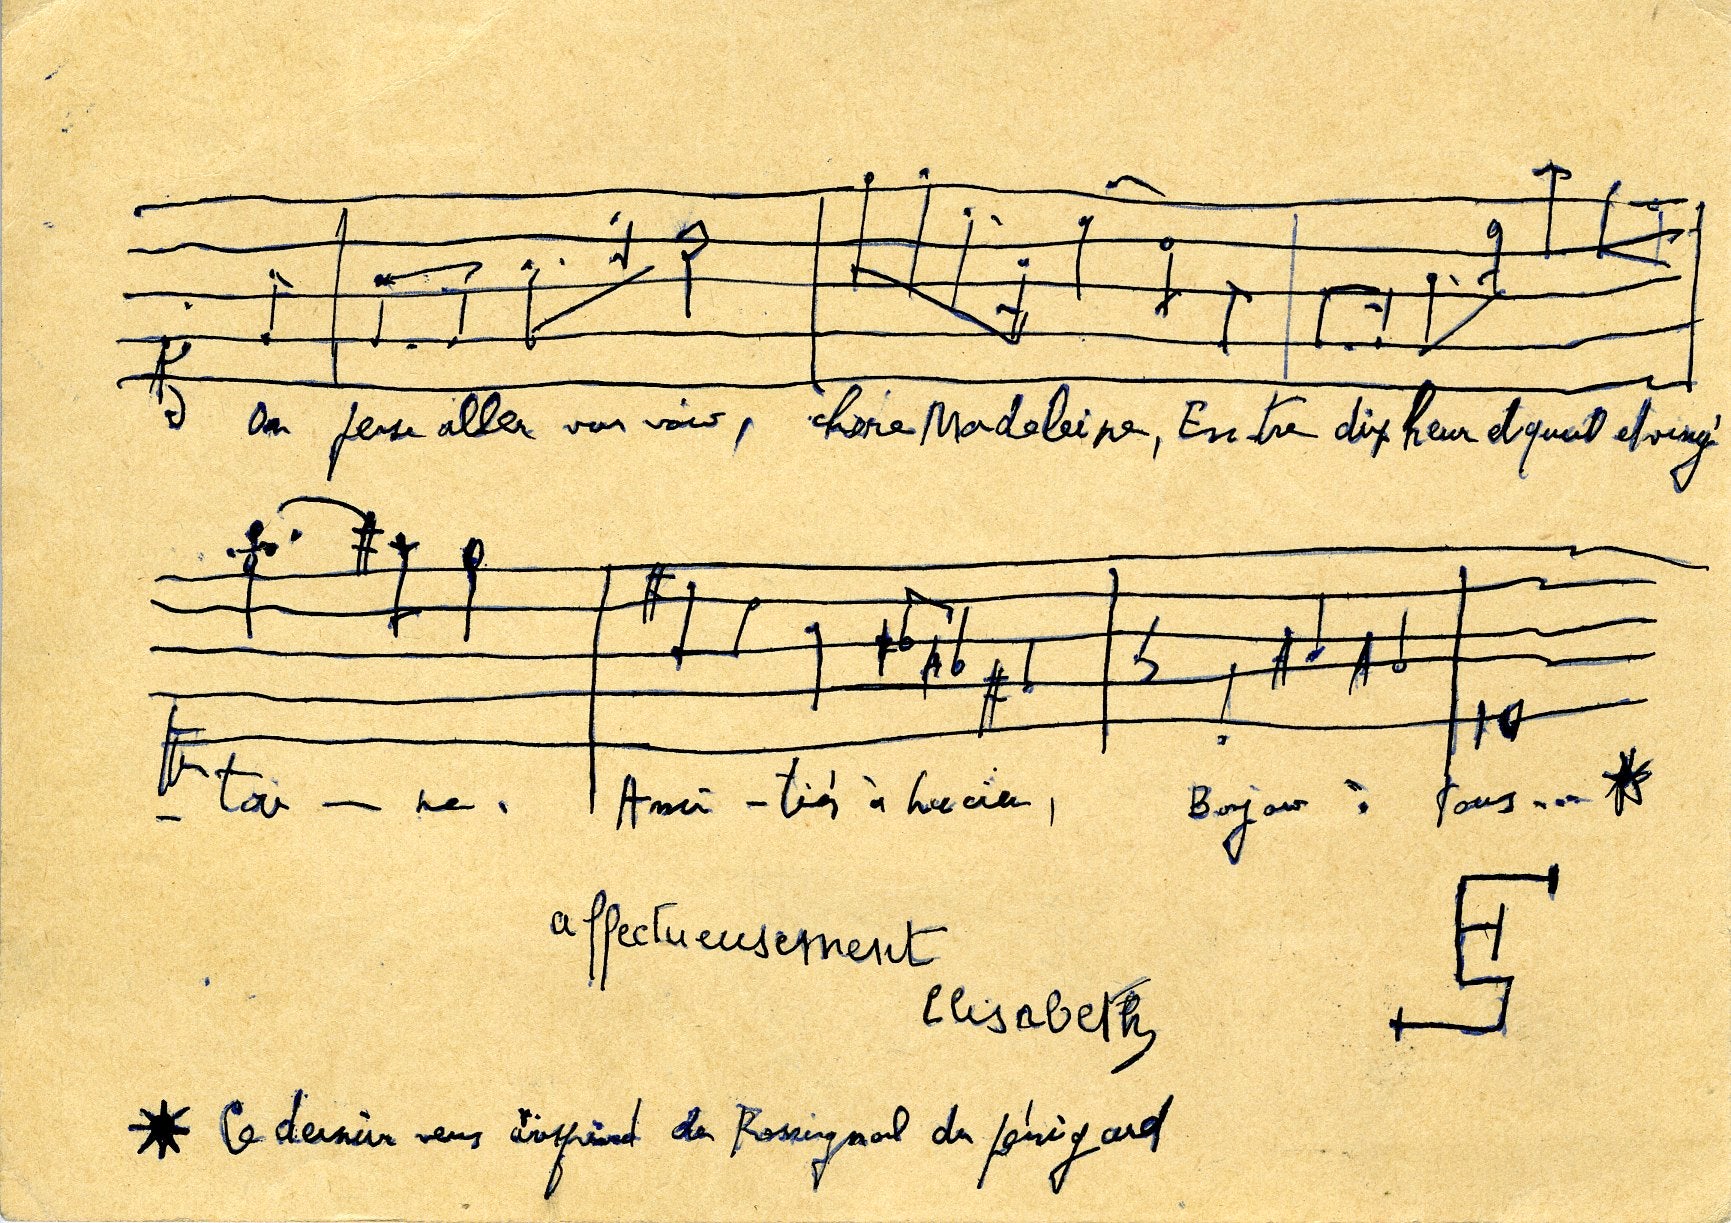 On pense aller vous voir, chère Madeleine, Entre dix heur et quart et vingt
- tai - ne. Ami - tiés à Lucien, Bonjour à tous... *
affectueusement
Elisabeth
* Ce dernier vers inspiré du Rossignol du périgord